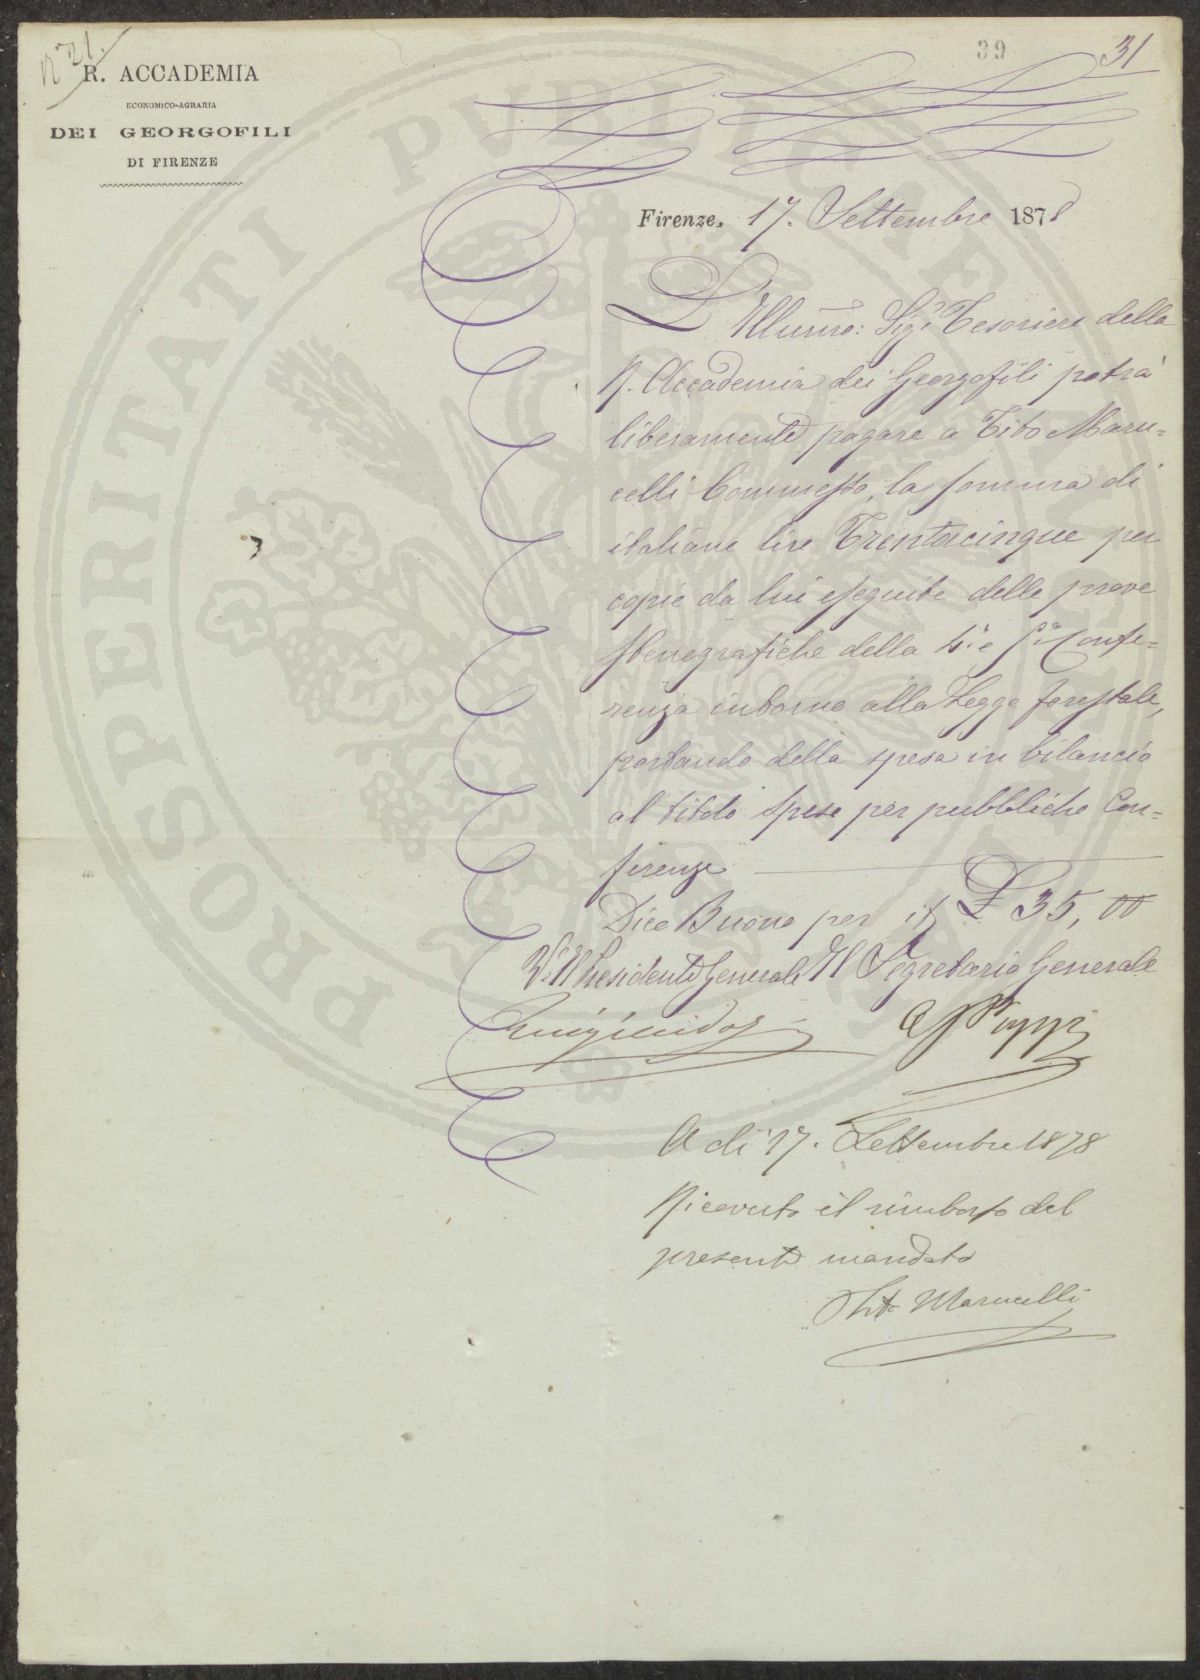 N° 21.
39
31
R. ACCADEMIA
ECONOMICO-AGRARIA
DEI GEORGOFILI
DI FIRENZE
Firenze, 17. Settembre 1878
L'Illumo: Sigr Tesoriere della
R. Accademia dei Georgofili potrà
liberamente pagare a Tito Maru=
celli Commesso, la somma di
italiane lire Trentacinque per
copie da lui eseguite delle prove
stenografiche della 4a e 5a Confe=
renza intorno alla Legge forestale,
portando della spesa in bilancio
al titolo spese per pubbliche Con=
ferenze
Dico Buono per it £ 35,00
Vo Il Presidente Generale Il Segretario Generale
A dì 17. Settembre 1878
Ricevuto il rimborso del
presente mandato
Tito Marucelli
PROSPERITATI PVBLICAE